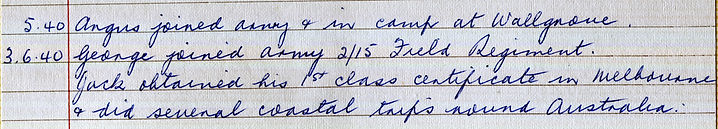 5.40 Angus joined army & in camp at Wallgrove.
3.6.40 George joined army 2/15 Field Regiment.
Jack obtained his 1st class certificate in Melbourne
& did several coastal trips round Australia.